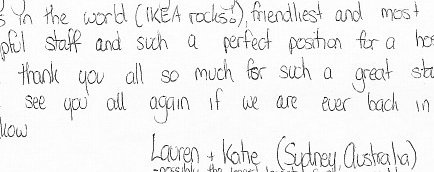 in the world (IKEA rocks!), friendliest and most
staff and such a perfect position for a
thank you all so much for such a great
see you all again if we are ever back in
Lauren + Katie (Sydney, Australia)
possibly the longest